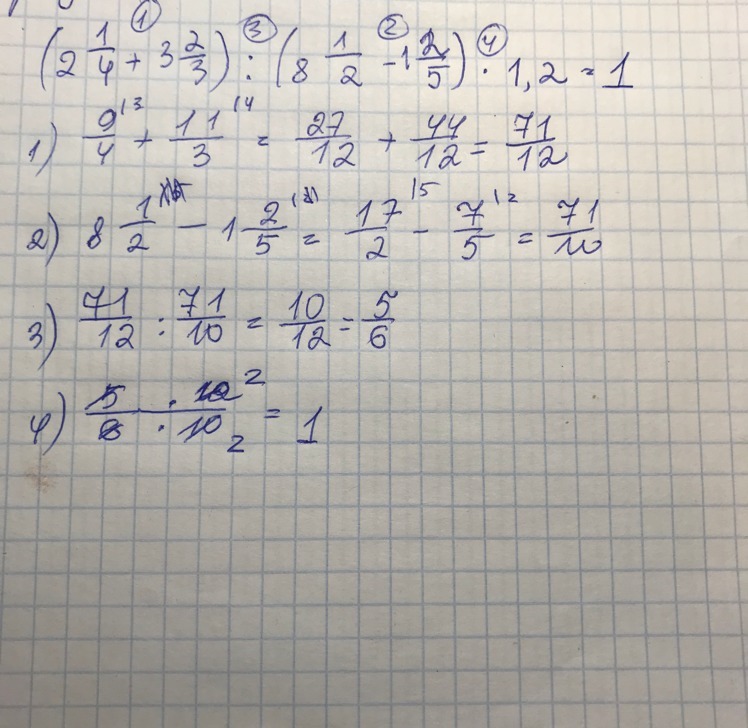 ① ③ ② ④
(2 1/4 + 3 2/3) : (8 1/2 - 1 2/5) · 1,2 = 1
1) 9/4 |3 + 11/3 |4 = 27/12 + 44/12 = 71/12
2) 8 1/2 - 1 2/5 = 17/2 |5 - 7/5 |2 = 71/10
3) 71/12 : 71/10 = 10/12 = 5/6
4) 5/6 · 12/10 2 2 = 1